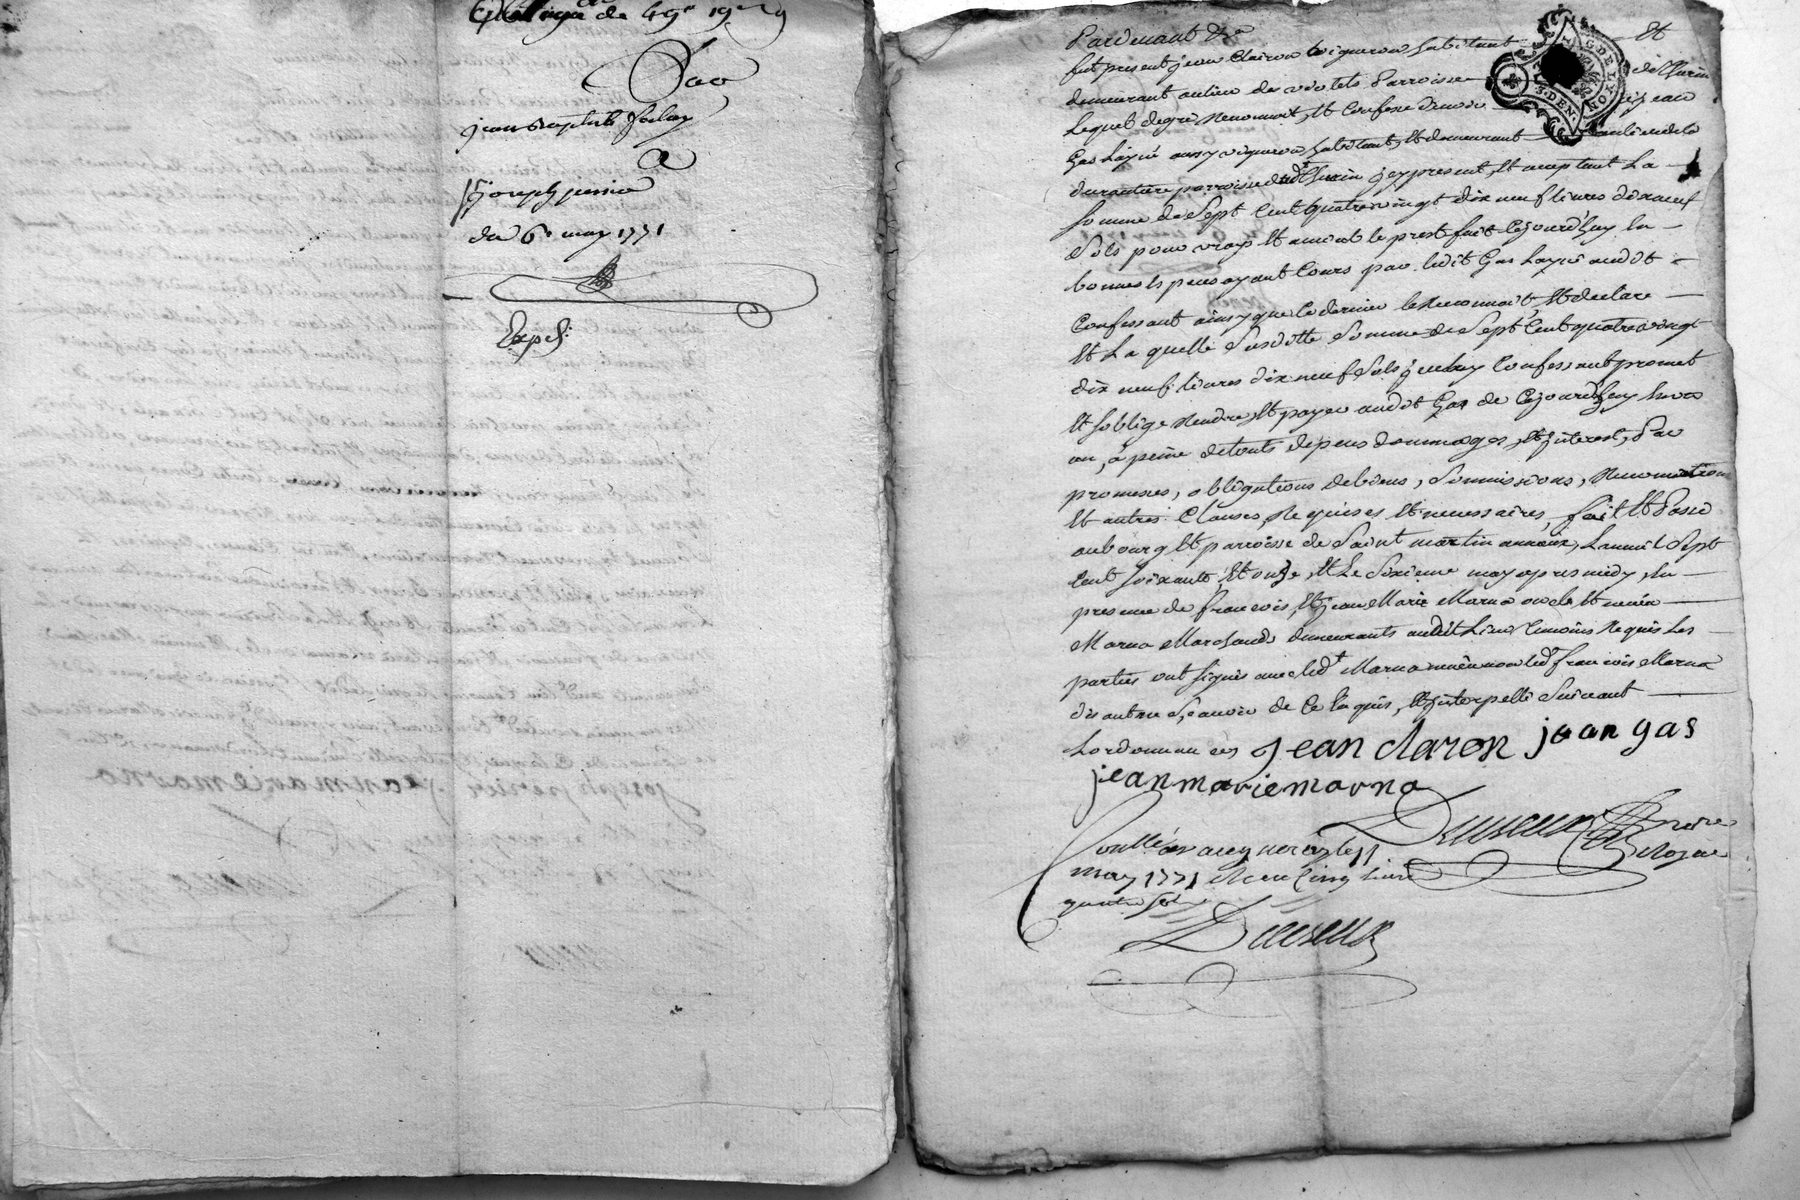 obligation de 49# 19s 9
Par
jean Baptiste
A
joseph perrier
du 6e. may 1771
Exped.
Pardevant &a
fut present jean Clairon vigneron habitant Et
demeurant au lieu de violets Parroisse de Thurin
Lequel de gré Reconnoit, Et Confesse devoir à jean
Gas Layné aussy vigneron habitant, Et demeurant au lieu de la
durantiere parroisse dudt Thurin icy present, Et aceptant La
somme de Sept Cent quatre vingt dix neuf livres dix neuf
Sols pour vray Et amiable prest fait Cejourd'huy En
bonnes Especes ayant Cours par ledit Gas Layné audit
Confessant ainsy que Ce dernier le Reconnoit, Et declare
Et La quelle Susditte Somme de Sept Cent quatre vingt
dix neuf livres dix neuf Sols jcelluy Confessant promet
Et soblige Rendre, Et payer audit Gas de Cejourdhuy En un
an, à peine de touts depens dommages, Et jnterest, Par
promesses, obligations de biens, Soumissions, Renonciations
Et autres Clauses Requises Et necessaires, fait Et Passé
au bourg Et parroisse de Saint martin annaux, L'an mil Sept
Cent soixante Et onze, Et Le Sixieme may apres midy, En
presence de francois, Et jean Marie Marna oncle Et neveu
Marna Marchands demeurants audit Lieu temoins Requis Les
parties ont signés avec led.t Marna neveu non led.t francois Marna
dis autre Scavoir de Ce Enquis, Et jnterpellé Suivant
Lordonnances jean claron jean gas
jean marie marna
Notaire
Royal
Conllé
may 1771 Recu Cinq livres
quatre sols
G DE LYON
3. DEN.